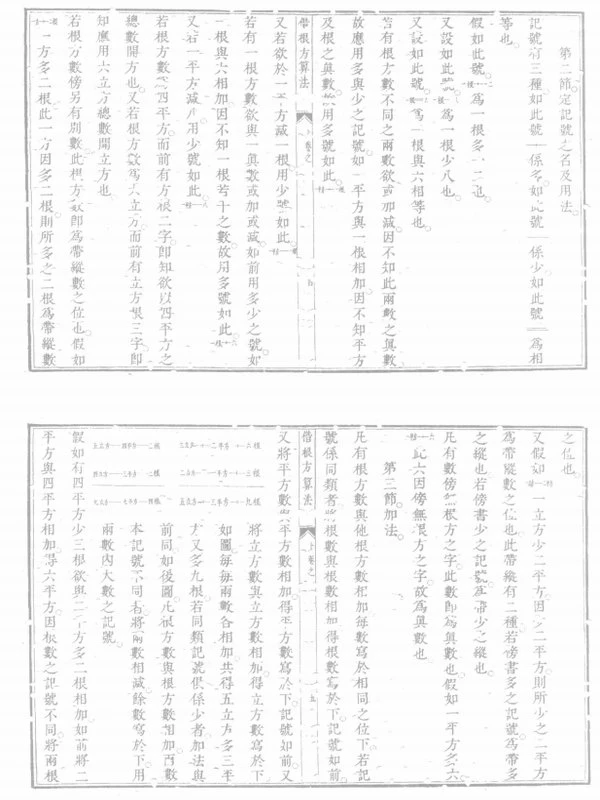 第二節定記號之名及用法
記號有三種如此號 係多如此號 係少如此號 爲相
等也
假如此號 爲一根多 二也
又設如此號 爲一根少八也
又設如此號 爲一根與六相等也
若有根方數不同之兩數欲或加減因不知此兩數之真數
故應用多與少之記號如一平方與一根相加因不知平方
及根之真數故用多號如此
借根方算法
又若欲於一平方減一根用少號如此
若有一根方數欲與一真數或加或減如前用多少之號如
一根與六相加因不知一根若干之數故用多號如此
又若一平方減八用少號如此
若根方數爲四平方而前有方根二字卽知欲以四平方之
總數開方也又若根方數爲六立方而前有立方根三字卽
知應用六立方總數開立方也
若根方數傍另有別數此根方數卽爲帶縱數之位也假如
一方多二根此一方因多二根則所多之二根爲帶縱數
之位也
又假如 一立方少二平方因少二平方則所少之二平方
爲帶縱數之位也此帶縱有二種若傍書多之記號爲帶多
之縱也若傍書少之記號爲帶少之縱也
凡有數傍無根方之字此數卽爲真數也假如一平方多六
此六因傍無根方之字故爲真數也
第三節加法
凡有根方數與他根方數相加每數寫於相同之位下若記
號係同類者將根數與根數相加得根數寫於下記號如前
借根方算法
又將平方數與平方數相加得平方數寫於下記號如前又
將立方數與立方數相加得立方數寫於下
如圖每每兩數各相加共得五立方多三平
方又多九根若同類記號俱係少者加法與
前同如後圖凡根方數與根方數相加兩數
本記號不同者將兩數相減餘數寫於下用
兩數內大數之記號
假如有四平方少三根欲與二平方多二根相加如前將二
平方與四平方相加得六平方因根數之記號不同將兩根